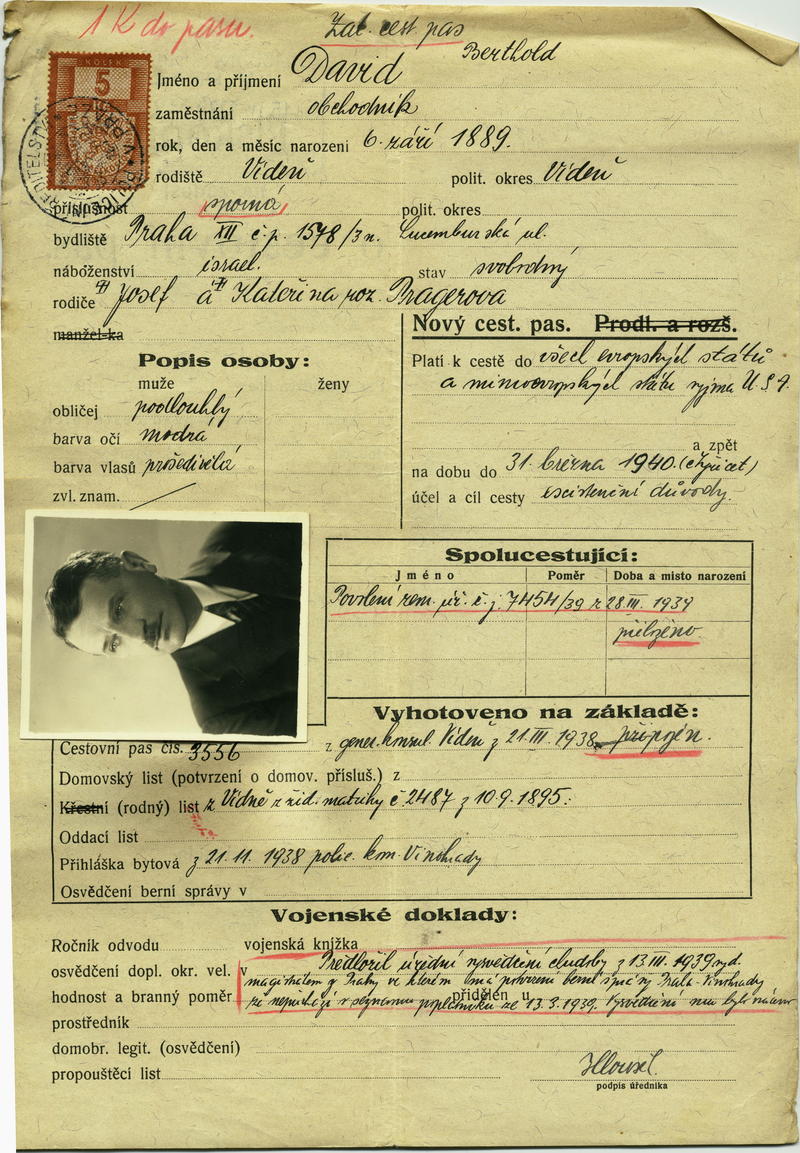 1 K do pasu.
Žal. cest pas
KOLEK
5
Jméno a příjmení David Berthold
zaměstnání obchodník
rok, den a měsíc narození 6. září 1889.
rodiště Vídeň polit. okres Vídeň
příslušnost sporná polit. okres
bydliště Praha XII č.p. 1578/3n. Lucemburská ul.
náboženství israel. stav svobodný
rodiče Josef a Kateřina roz. Pragerova
manžel-ka
Nový cest. pas. Prodl. a rozš.
Popis osoby:
muže ženy
obličej podlouhlý
barva očí modrá
barva vlasů prošedivělá
zvl. znam.
Platí k cestě do všech evropských států
a mimoevropských států vyjma U.S.A.
a zpět
na dobu do 31. března 1940. (čtyřicet)
účel a cíl cesty existenční důvody.
Spolucestující:
Jméno Poměr Doba a misto narození
Povolení zem. úř. č.j. 7454/39 z 28.III. 1939
přiloženo.
Vyhotoveno na základě:
Cestovní pas čís. 3556 z gener. konsul. Vídeň z 21.III. 1938. připojen.
Domovský list (potvrzení o domov. přísluš.) z
Křestní (rodný) list z Vídně z žid. matriky č 2487 z 10.9.1895.
Oddací list
Přihláška bytová z 21.11.1938 polic. kom. Vinohrady
Osvědčení berní správy v
Vojenské doklady:
Ročník odvodu vojenská knížka
osvědčení dopl. okr. vel. v Předložil úřední vysvědčení chudoby z 13.III.1939 vyd.
magistrátem v Prahy ve kterém má potvrzení berní správy Praha-Vinohrady
hodnost a branný poměr přidělen u
že nepřichází v seznamu poplatníků ze 13.3.1939. Vysvědčení mu bylo
prostředník
domobr. legit. (osvědčení)
propouštěcí list
podpis úředníka